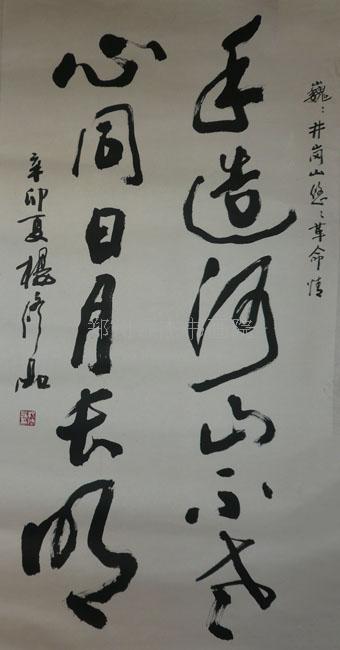 巍々井岗山悠々革命情
手造河山不老
心同日月长明
辛卯夏杨修